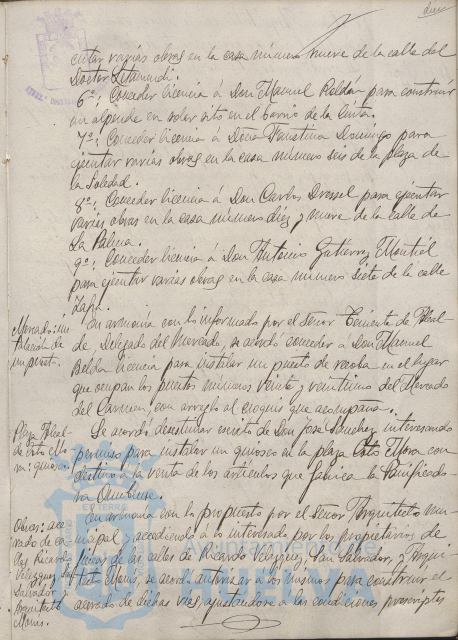 cutar varias obras en la casa número nueve de la calle del
Doctor Letamendi.
6º: Conceder licencia á Don Manuel Roldán para construir
un alpende en solar sito en el barrio de la Cinta.
7º: Conceder licencia á Doña Faustina Domingo para
ejecutar varias obras en la casa número seis de la plaza de
la Soledad.
8º: Conceder licencia á Don Carlos Dressel para ejecutar
varias obras en la casa número diez y nueve de la calle de
La Palma.
9º: Conceder licencia á Don Antonio Gutierrez Montiel
para ejecutar varias obras en la casa número siete de la calle
Zafra.
Mercado: ins
talación de
un puesto.
En armonía con lo informado por el Señor Teniente de Alcal-
de Delegado del Mercado, se acordó conceder a Don Manuel
licencia para instalar un puesto de recoba en el lugar
que ocupan los puestos números veinte y veintiuno del Mercado
del Carmen, con arreglo al croquis que acompaña.
Plaza Alcal-
de Coto Mo-
ra: quiosco.
Se acordó desestimar escrito de Don José Sanchez interesando
permiso para instalar un quiosco en la plaza Coto Mora con
destino á la venta de los artículos que fabrica la Panificado-
ra Onubense.
Obras: ace-
rado de ca-
lles Ricardo
Velázquez, San
Salvador y
Arquitecto
Monis.
En armonía con lo propuesto por el Señor Arquitecto mu-
nicipal y accediendo á lo interesado por los propietarios de
fincas de las calles de Ricardo Velázquez, San Salvador, y Arqui-
tecto Monis, se acordó autorizar a los mismos para construir el
acerado de dichas vías, ajustándose a las condiciones prescriptas
AYUNTAMIENTO DE
HUELVA